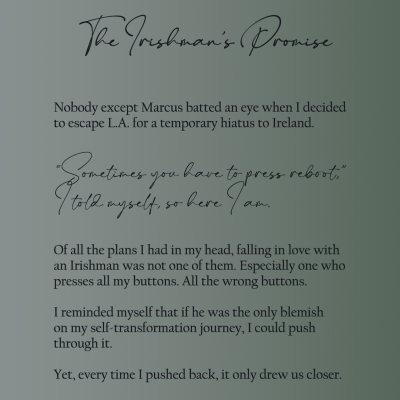 The Irishman's Promise
Nobody except Marcus batted an eye when I decided
to escape L.A. for a temporary hiatus to Ireland.
"Sometimes you have to press reboot,"
I told myself, so here I am.
Of all the plans I had in my head, falling in love with
an Irishman was not one of them. Especially one who
presses all my buttons. All the wrong buttons.
I reminded myself that if he was the only blemish
on my self-transformation journey, I could push
through it.
Yet, every time I pushed back, it only drew us closer.